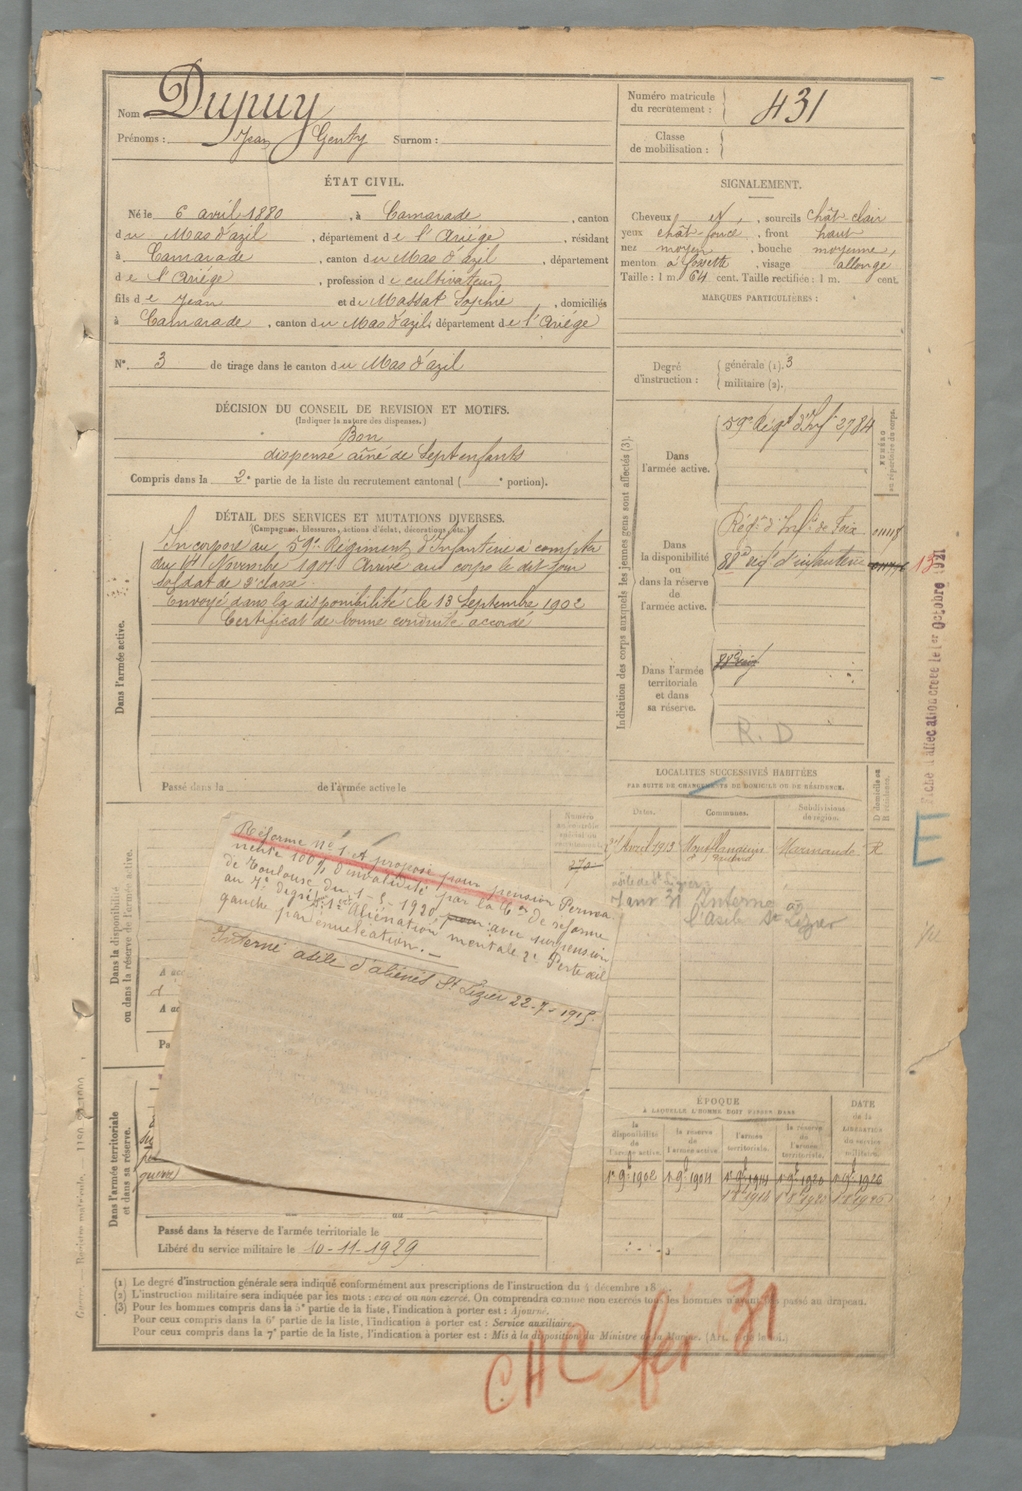 Nom Dupuy
Prénoms : Jean Genty Surnom :
Numéro matricule du recrutement : 431
Classe de mobilisation :
ÉTAT CIVIL.
Né le 6 avril 1880, à Camarade, canton
du Mas d'azil, département de l'Ariége, résidant
à Camarade, canton du Mas d'azil, département
de l'Ariége, profession de cultivateur
fils de Jean et de Massat Sophie, domiciliés
à Camarade, canton du Mas d'azil, département de l'Ariége
N° 3 de tirage dans le canton du Mas d'azil
SIGNALEMENT.
Cheveux et, sourcils chât clair
yeux chât foncé, front haut
nez moyen, bouche moyenne,
menton à fossette, visage allongé
Taille : 1 m. 64 cent. Taille rectifiée : 1 m. cent.
MARQUES PARTICULIÈRES :
Degré d'instruction : générale (1). 3
militaire (2).
DÉCISION DU CONSEIL DE REVISION ET MOTIFS.
(Indiquer la nature des dispenses.)
Bon
dispensé aîné de Sept enfants
Compris dans la 2e partie de la liste du recrutement cantonal ( e portion).
DÉTAIL DES SERVICES ET MUTATIONS DIVERSES.
(Campagnes, blessures, actions d'éclat, décorations, etc.)
Dans l'armée active.
Incorporé au 59e Régiment d'Infanterie à compter
du 14 Novembre 1901 Arrivé au corps le dit jour
soldat de 2e classe
Envoyé dans la disponibilité le 13 Septembre 1902
Certificat de bonne conduite accordé
Passé dans la de l'armée active le
Indication des corps auxquels les jeunes gens sont affectés (3).
NUMÉRO au répertoire du corps.
Dans l'armée active.
59e Régt d'Inf. 2784
Dans la disponibilité ou dans la réserve de l'armée active.
Régt d'Infie de Foix 01118
88e régt d'infanterie
13
Dans l'armée territoriale et dans sa réserve.
R. D
Fiche d'affectation créée le 1er Octobre 1921
E
LOCALITÉS SUCCESSIVES HABITÉES
PAR SUITE DE CHANGEMENTS DE DOMICILE OU DE RÉSIDENCE.
Dates. Communes. Subdivisions de région. D domicile ou R résidence.
Avril 1913 Montflanquin Marmande R
7 Janv 31 Interné à
l'Asile St Lizier
Dans la disponibilité ou dans la réserve de l'armée active.
Réforme n° 1 et proposé pour pension Perma
nente 100% d'invalidité par la C on de réforme
de Toulouse du 1.5.1920 pour avec surpension
au 7e degré. 1° Aliénation mentale 2° Perte œil
gauche par énucléation. —
Interné asile d'aliénés St Lizier 22-7-1915.
Dans l'armée territoriale et dans sa réserve.
Passé dans la réserve de l'armée territoriale le
Libéré du service militaire le 10-11-1929
ÉPOQUE
À LAQUELLE L'HOMME DOIT PASSER DANS
la disponibilité de l'armée active.
la réserve de l'armée active.
l'armée territoriale.
la réserve de l'armée territoriale.
DATE de la LIBÉRATION du service militaire.
1er 9bre 1902 1er 9bre 1904 1er 9bre 1914 1er 9bre 1920 1er 9bre 1926
(1) Le degré d'instruction générale sera indiqué conformément aux prescriptions de l'instruction du 4 décembre 18
(2) L'instruction militaire sera indiquée par les mots : exercé ou non exercé. On comprendra comme non exercés tous les hommes n'ayant pas passé au drapeau.
(3) Pour les hommes compris dans la 5e partie de la liste, l'indication à porter est : Ajourné.
Pour ceux compris dans la 6e partie de la liste, l'indication à porter est : Service auxiliaire.
Pour ceux compris dans la 7e partie de la liste, l'indication à porter est : Mis à la disposition du Ministre de la Marine.
CHC fev 31